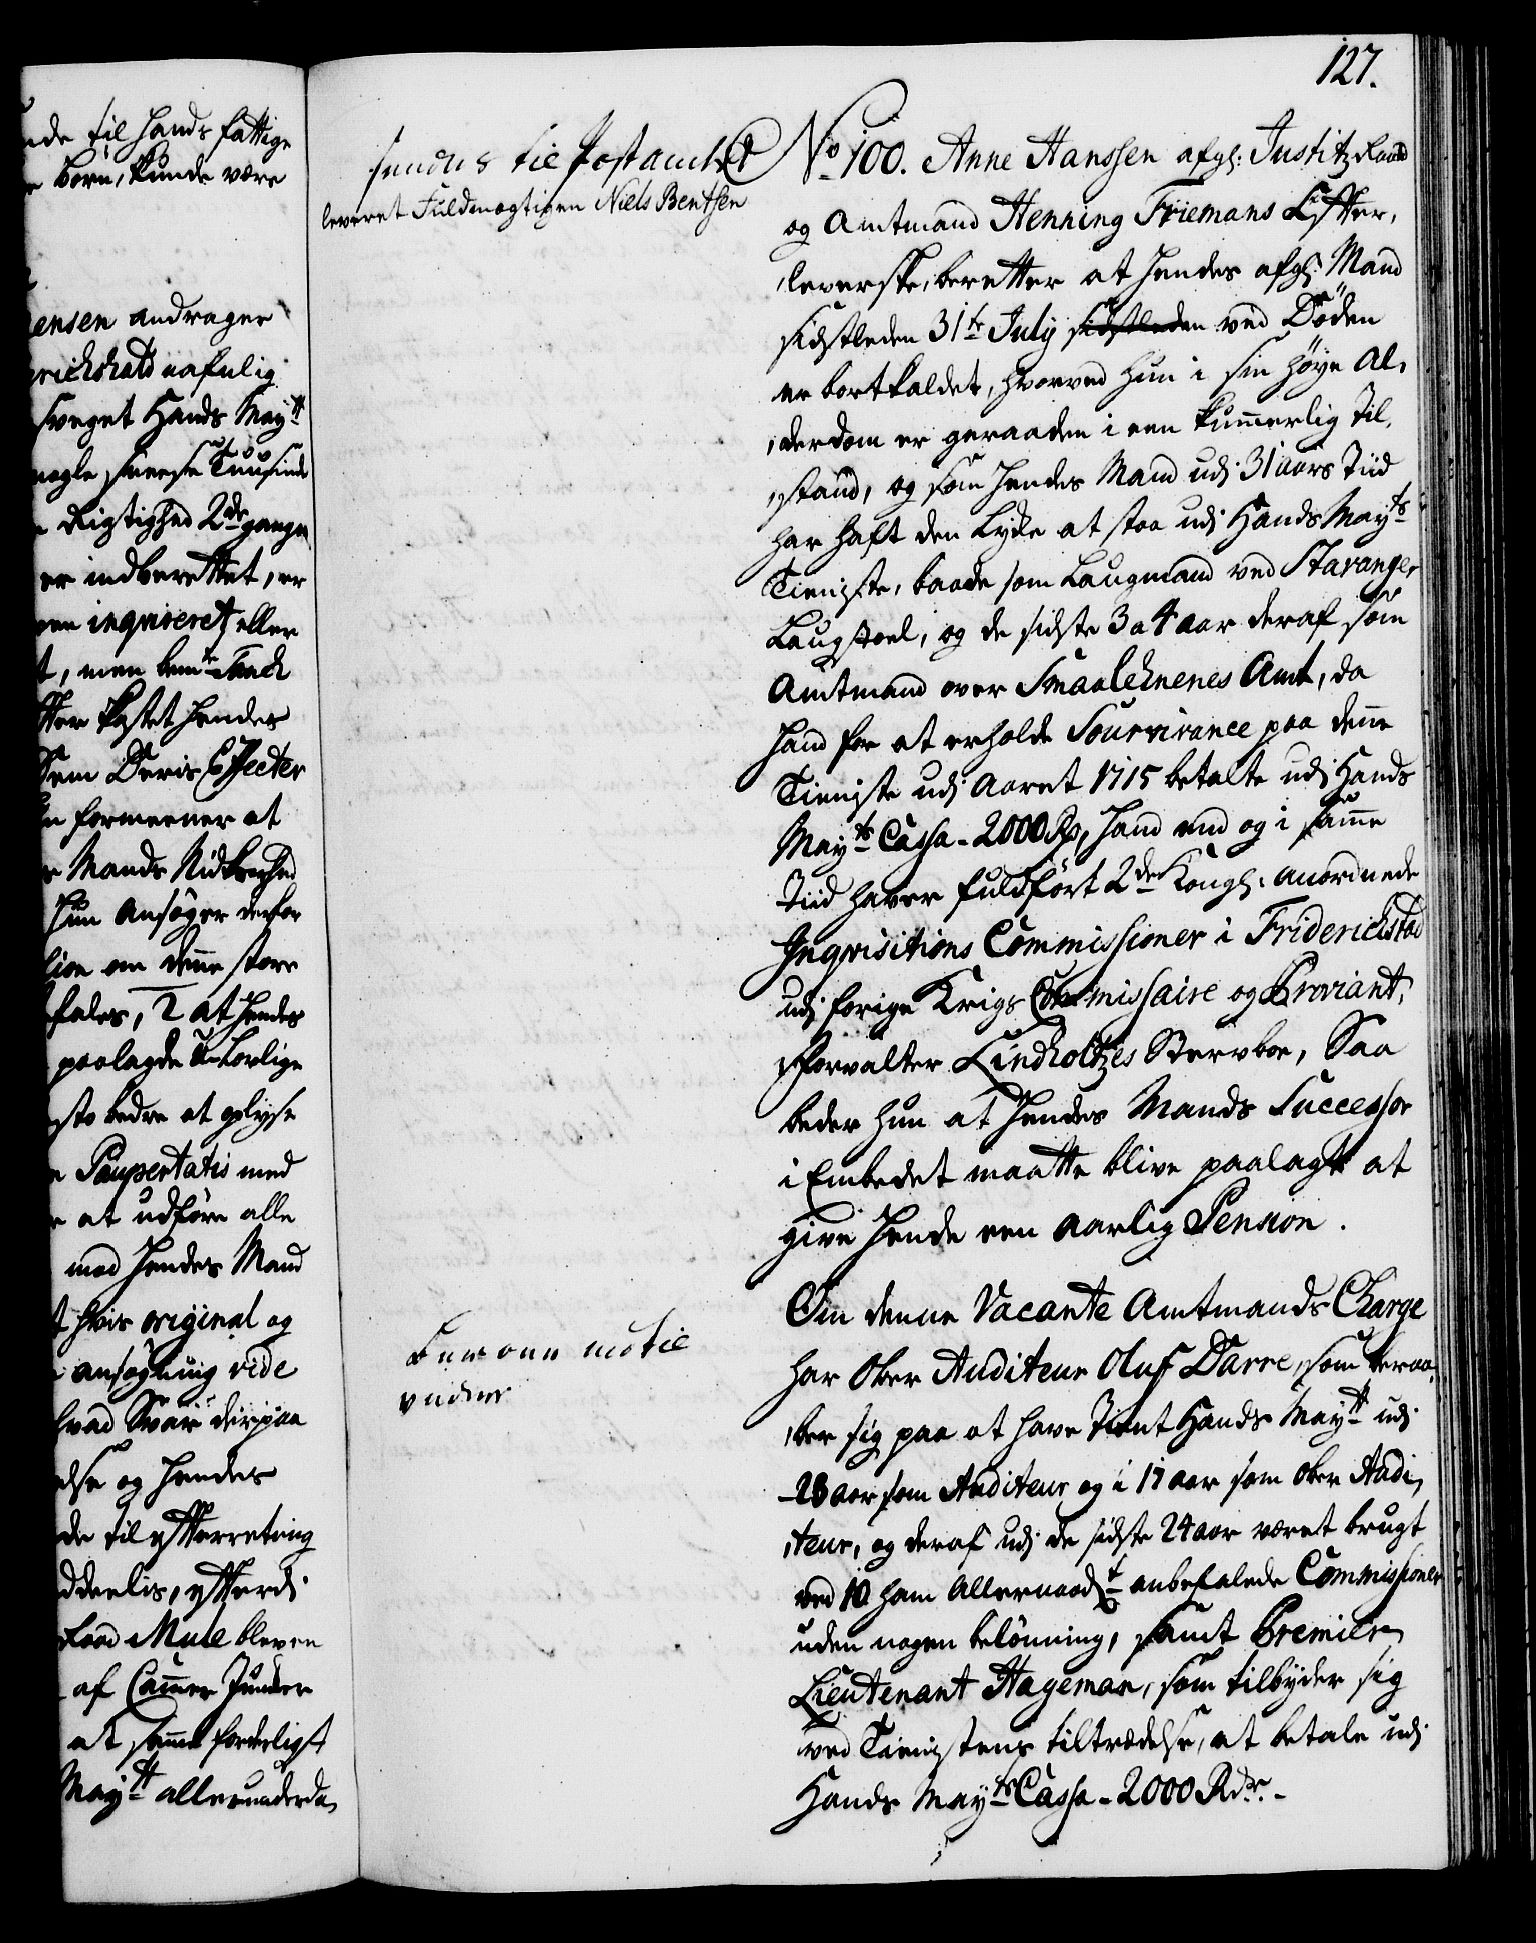 127.
ede til hands fattige
børn, kunde være
ensen andrager
sveget Hands Mayt
nogle Tuusinde
Rigtighed 2de gange
er indberettet, er
een inqvireret eller
t, men bemte Tanck
kastet hendes
Sem Deris Effecter
formeener at
Mands Nidkierhed
hun Ansøger derfor
lion om denne store
fales, 2 at hendes
paalagde U-Lovlige
bedre at oplyse
Paupertatis med
at udføre alle
mod hendes Mand
t hvis original og
ansøgning vide
hvad Svar derpaa
else og hendes
de til efterretning
ddeelis, efterdj
Raad Mule bleven
af Camer Junker
at samme forderligst
Mayt allerunderda
sendes til Postamtet
leveret Fuldmægtigen Niels Bentsen
No 100. Anne Hanssen afgl: Justitz Raad
og Amtmand Henning Friemans Efter,
,leverske, beretter at hendes afgl: Mand
sidstleden 31te July sidstleden ved Døden
er bortkaldet, hvorved hun i sin høye Al,
,derdom er geraaden i een kummerlig Til,
,stand, og som hendes Mand udj 31 aars Tiid
har haft den Lykke at staa udj Hands Mayts
Tieniste, baade som Laugmand ved Stavanger
Laugstoel, og de sidste 3 a 4 aar deraf som
Amtmand over Smaalehnenes Amt, da
hand for at erholde Sourvivance paa denne
Tieniste udj Aaret 1715 betalte udj Hands
Mayts Cassa - 2000 Rd, hand end og i samme
Tiid haver fuldført 2de Kongl: anordnede
Inqvisitions Commissioner i Friderichstad
udj forige Krigs Commissaire og Proviant,
forvalter Lindholtzes Stervboe, Saa
beder hun at hendes Mands Successor
i Embedet maatte blive paalagt at
give hende een aarlig Pension.
Om denne Vacante Amtmands Charge
har Ober Auditeur Oluf Darre, som beraa,
,ber sig paa at have tient Hands Mayt udj
28 aar som Auditeur og i 17 aar som Ober Audi,
,teur, og deraf udj de sidste 24 aar været brugt
ved 10 ham Allernaadst anbefalede Commissioner
uden nogen belønning, samt Premier
Lieutenant Hageman, som tilbyder sig
ved Tienistens tiltrædelse, at betale udj
Hands Mayts Cassa - 2000 Rdr. -